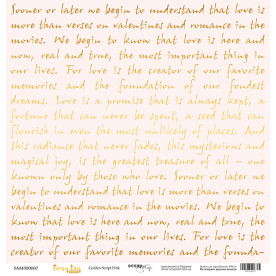 Sooner or later we begin to understand that love is
more than verses on valentines and romance in the
movies. We begin to know that love is here and
now, real and true, the most important thing in
our lives. For love is the creator of our favorite
memories and the foundation of our fondest
dreams. Love is a promise that is always kept, a
fortune that can never be spent, a seed that can
flourish in even the most unlikely of places. And
this radiance that never fades, this mysterious and
magical joy, is the greatest treasure of all – one
known only by those who love. Sooner or later we
begin to understand that love is more than verses on
valentines and romance in the movies. We begin to
know that love is here and now, real and true, the
most important thing in our lives. For love is the
creator of our favorite memories and the founda-
Golden Script Pink